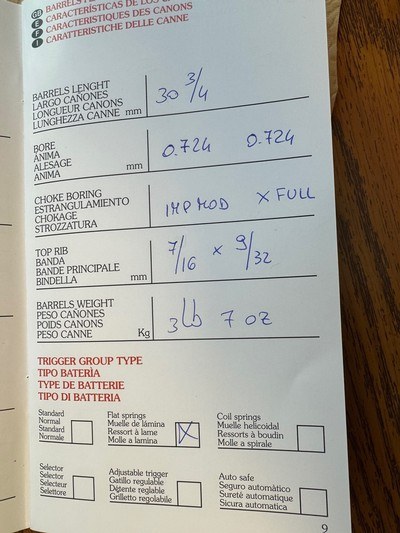 GB
E CARACTERÍSTICAS DE LOS
F CARACTERISTIQUES DES CANONS
I CARATTERISTICHE DELLE CANNE
BARRELS LENGHT
LARGO CAÑONES
LONGUEUR CANONS
LUNGHEZZA CANNE mm
30 3/4
BORE
ANIMA
ALESAGE
ANIMA mm
0.724 0.724
CHOKE BORING
ESTRANGULAMIENTO
CHOKAGE
STROZZATURA
IMP MOD X FULL
TOP RIB
BANDA
BANDE PRINCIPALE
BINDELLA mm
7/16 x 9/32
BARRELS WEIGHT
PESO CAÑONES
POIDS CANONS
PESO CANNE Kg
3 lb 7 oz
TRIGGER GROUP TYPE
TIPO BATERÌA
TYPE DE BATTERIE
TIPO DI BATTERIA
Standard
Normal
Standard
Normale
Flat springs
Muelle de làmina
Ressort à lame
Molle a lamina
X
Coil springs
Muelle helicoidal
Ressorts à boudin
Molle a spirale
Selector
Selector
Selecteur
Selettore
Adjustable trigger
Gatillo regulable
Détente reglable
Grilletto regolabile
Auto safe
Seguro automàtico
Sureté automatique
Sicura automatica
9